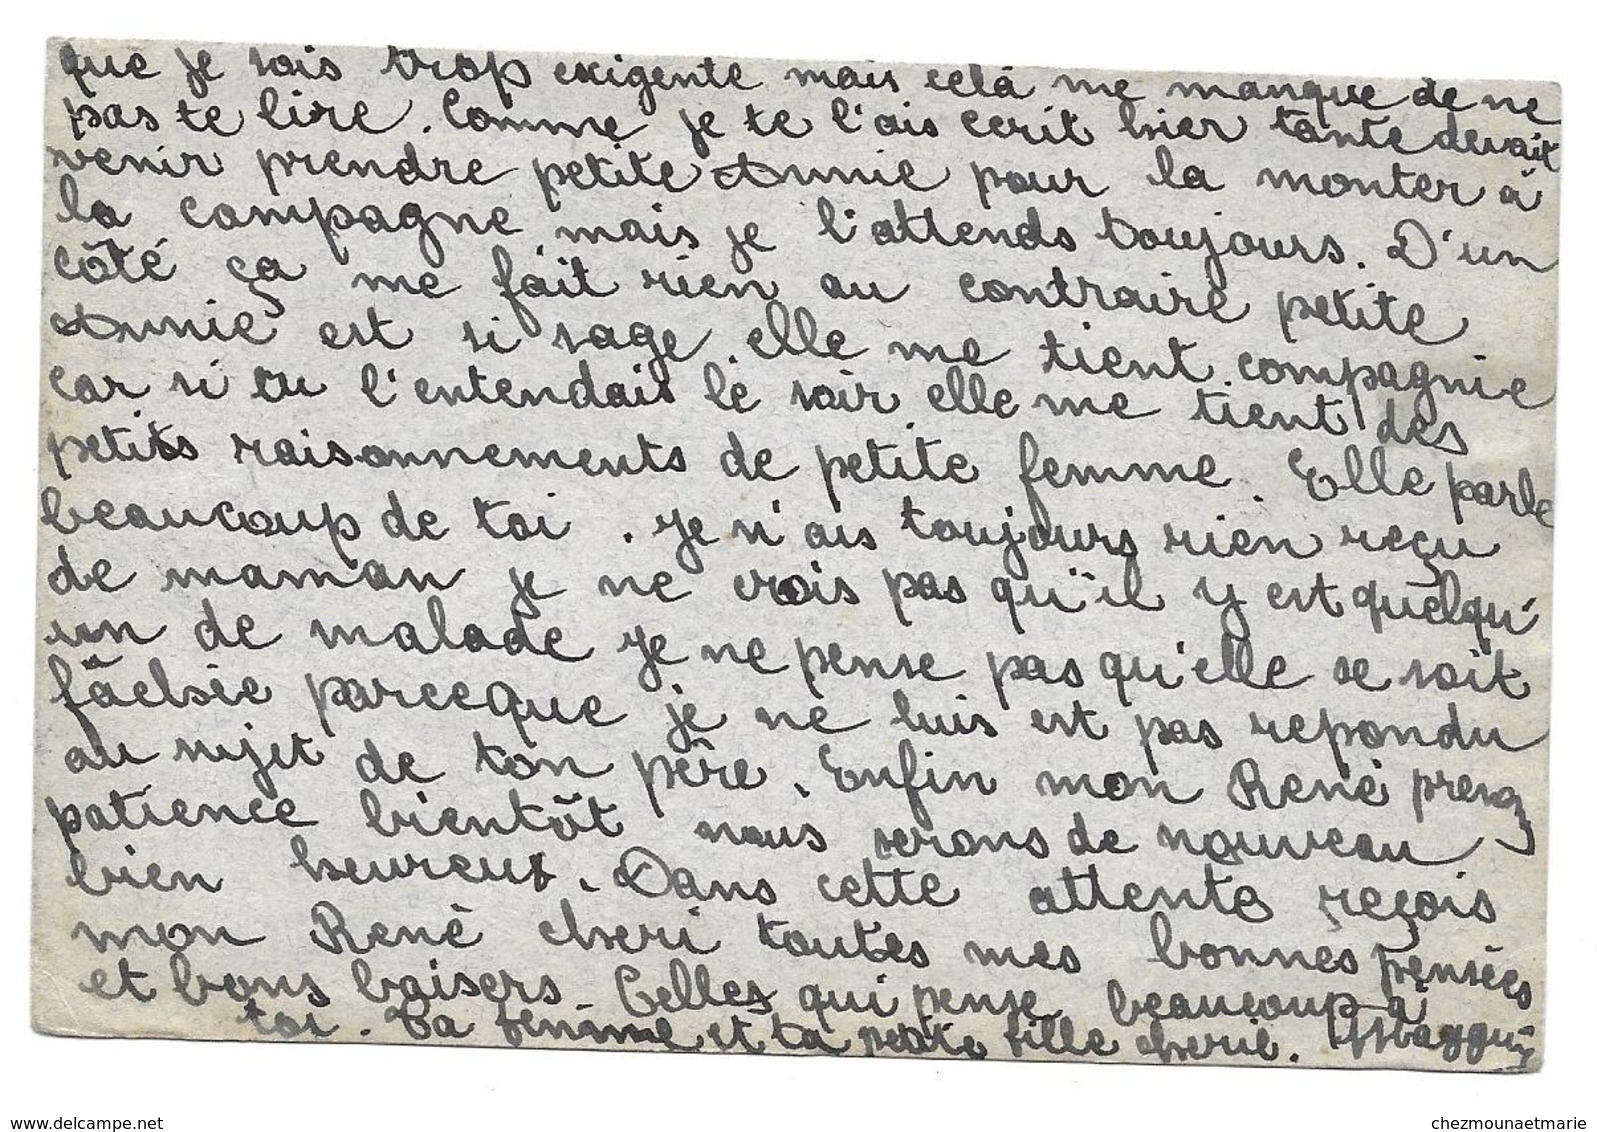 que je sois trop exigente mais celà me manque de ne
pas te lire. Comme je te l'ais ecrit hier tante devait
venir prendre petite Annie pour la monter à
la campagne mais je l'attends toujours. D'un
côté ça me fait rien au contraire petite
Annie est si sage elle me tient compagnie
car si tu l'entendais le soir elle me tient des
petits raisonnements de petite femme. Elle parle
beaucoup de toi. Je n'ais toujours rien reçu
de maman je ne crois pas qu'il y est quelqu'
un de malade je ne pense pas qu'elle se soit
fâchée parceque je ne luis est pas repondu
au sujet de ton père. Enfin mon René prend
patience bientôt nous serons de nouveau
bien heureux. Dans cette attente reçois
mon René cheri toutes mes bonnes pensées
et bons baisers - Celles qui pense beaucoup à
toi. Ta femme et ta petite fille cherie. Margguy
www.delcampe.net
chezmounaetmarie